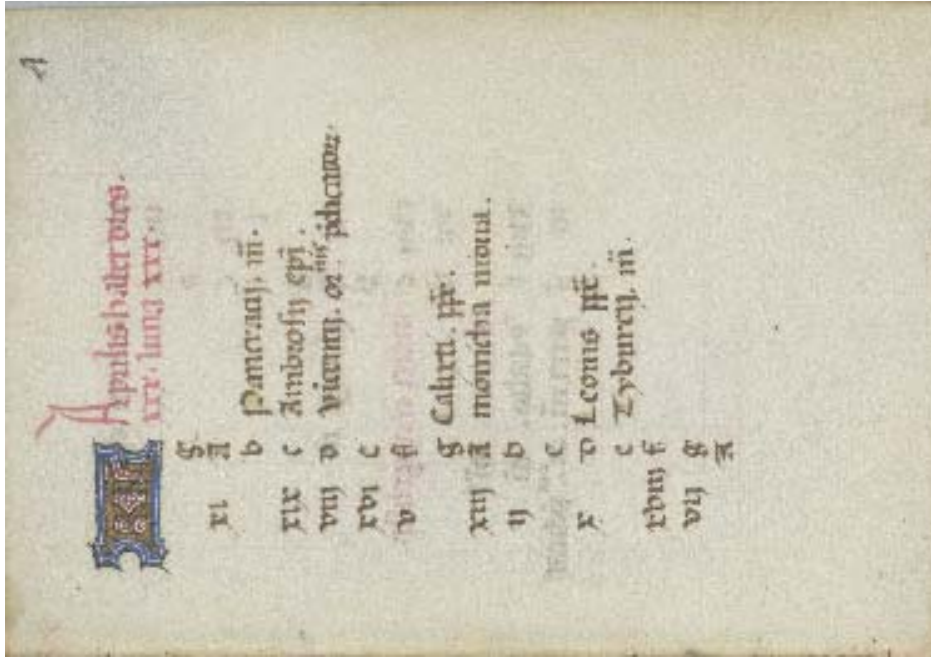 KL Aprilis habet dies.
xxx. luna xxx.
g
xi A
b Pancracij. m̄.
xix c Ambrosij epī.
viij d pdicator.
xvi e
v f
g Calixti. pp̄e.
xiij A
ij b
c
x d Leonis pp̄e.
e Tyburcij. m̄.
xviij f
vij g
A